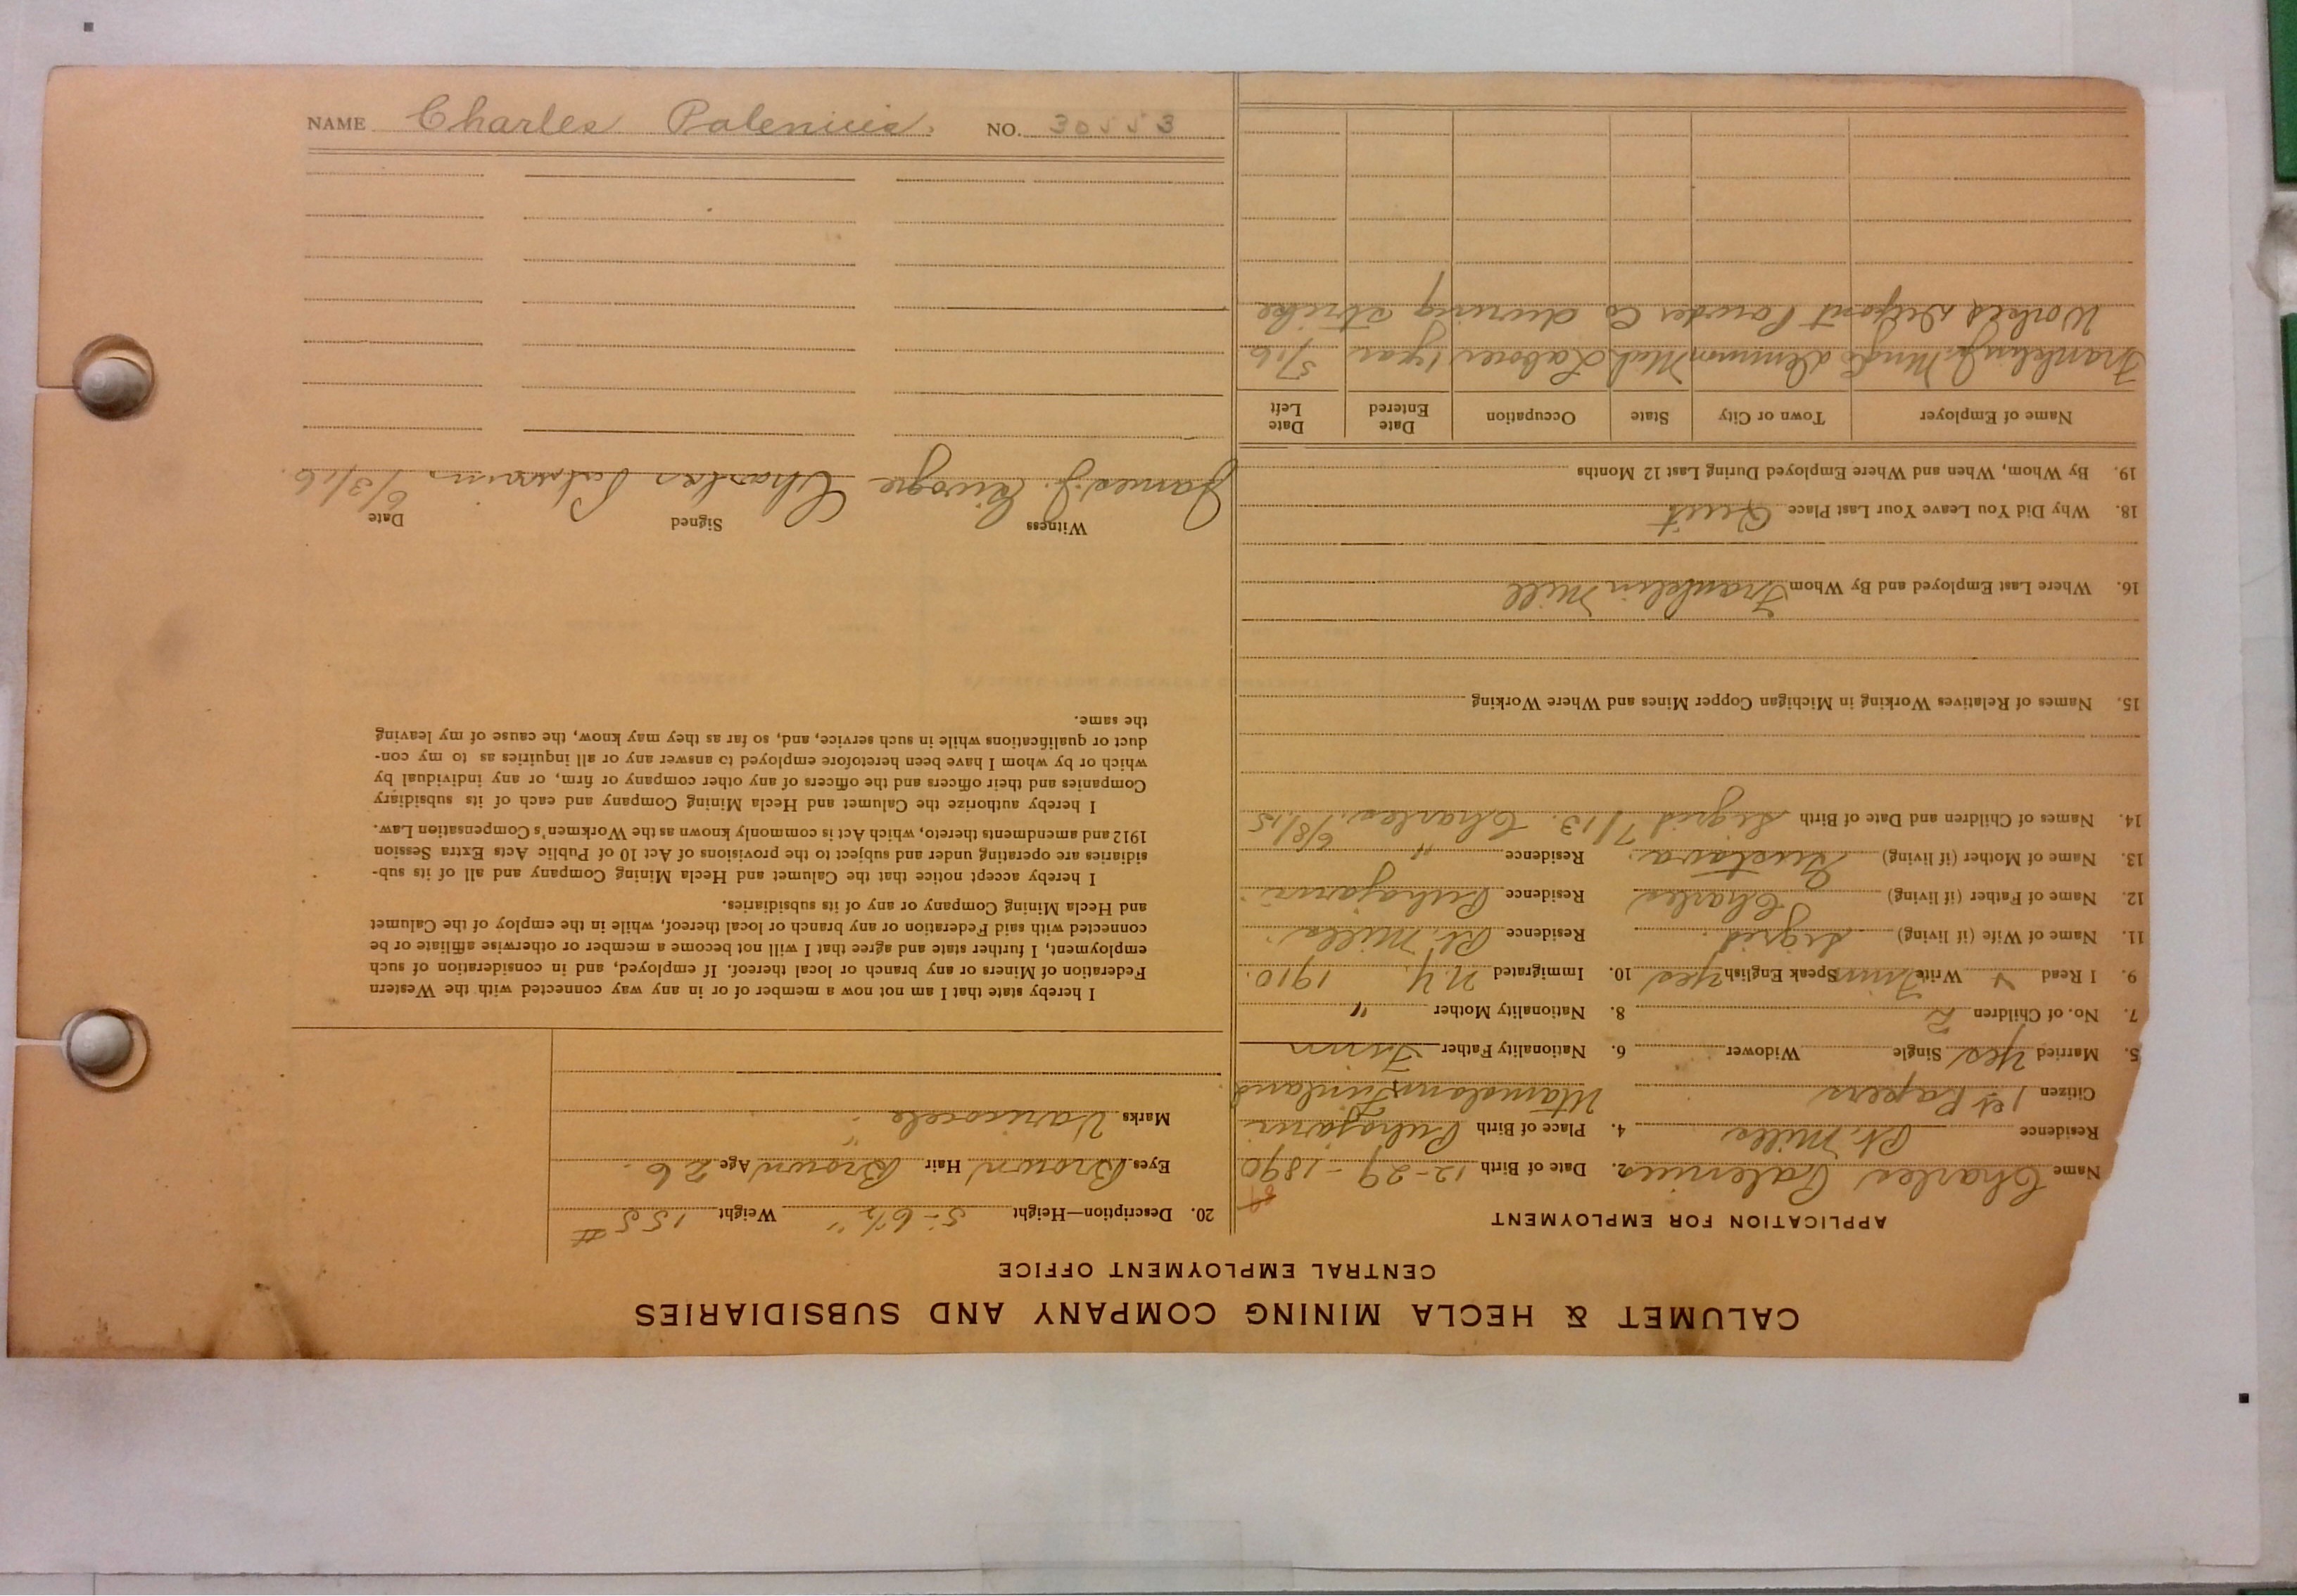 NAME Charles Palenius. NO. 30553
CALUMET & HECLA MINING COMPANY AND SUBSIDIARIES
CENTRAL EMPLOYMENT OFFICE
APPLICATION FOR EMPLOYMENT
Name Charles Palenius 2. Date of Birth 12-29-1890
Residence Pt. Mills 4. Place of Birth Puhajarvi
Citizen 1st Papers Finland
5. Married Yes Single Widower 6. Nationality Father Finn
7. No. of Children 2 8. Nationality Mother "
9. I Read √ Write Finn Speak English Yes 10. Immigrated N.Y. 1910.
11. Name of Wife (if living) Sigrid. Residence Pt. Mills.
12. Name of Father (if living) Charles Residence Puhajarvi
13. Name of Mother (if living) Gustava. Residence "
14. Names of Children and Date of Birth Sigrid 7/13. Charles. 6/8/15
15. Names of Relatives Working in Michigan Copper Mines and Where Working
16. Where Last Employed and By Whom Franklin Mill
18. Why Did You Leave Your Last Place Quit
19. By Whom, When and Where Employed During Last 12 Months
Name of Employer Town or City State Occupation Date Entered Date Left
Franklin Mng Co Mich Laborer 1 year 5/16
Worked Dupont Powder Co during strike
20. Description—Height 5-6½" Weight 155#
Eyes Brown Hair Brown Age 26.
Marks Varicocele
I hereby state that I am not now a member of or in any way connected with the Western
Federation of Miners or any branch or local thereof. If employed, and in consideration of such
employment, I further state and agree that I will not become a member or otherwise affiliate or be
connected with said Federation or any branch or local thereof, while in the employ of the Calumet
and Hecla Mining Company or any of its subsidiaries.
I hereby accept notice that the Calumet and Hecla Mining Company and all of its sub-
sidiaries are operating under and subject to the provisions of Act 10 of Public Acts Extra Session
1912 and amendments thereto, which Act is commonly known as the Workmen's Compensation Law.
I hereby authorize the Calumet and Hecla Mining Company and each of its subsidiary
Companies and their officers and the officers of any other company or firm, or any individual by
which or by whom I have been heretofore employed to answer any or all inquiries as to my con-
duct or qualifications while in such service, and, so far as they may know, the cause of my leaving
the same.
Witness Signed Date
James J. Charles Palenius 6/3/16.